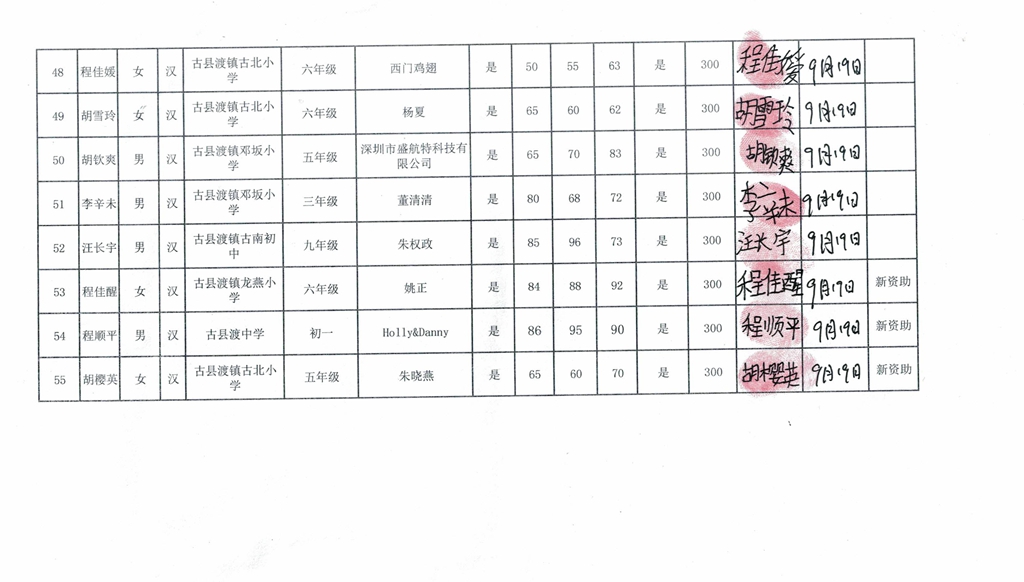 48 程佳媛 女 汉 古县渡镇古北小学 六年级 西门鸡翅 是 50 55 63 是 300 程佳媛 9月19日
49 胡雪玲 女 汉 古县渡镇古北小学 六年级 杨夏 是 65 60 62 是 300 胡雪玲 9月19日
50 胡钦爽 男 汉 古县渡镇邓坂小学 五年级 深圳市盛航特科技有限公司 是 65 70 83 是 300 胡钦爽 9月19日
51 李辛未 男 汉 古县渡镇邓坂小学 三年级 董清清 是 80 68 72 是 300 李辛未 9月19日
52 汪长宇 男 汉 古县渡镇古南初中 九年级 朱权政 是 85 96 73 是 300 汪长宇 9月19日
53 程佳醒 女 汉 古县渡镇龙燕小学 六年级 姚正 是 84 88 92 是 300 程佳醒 9月19日 新资助
54 程顺平 男 汉 古县渡中学 初一 Holly&Danny 是 86 95 90 是 300 程顺平 9月19日 新资助
55 胡樱英 女 汉 古县渡镇古北小学 五年级 朱晓燕 是 65 60 70 是 300 胡樱英 9月19日 新资助